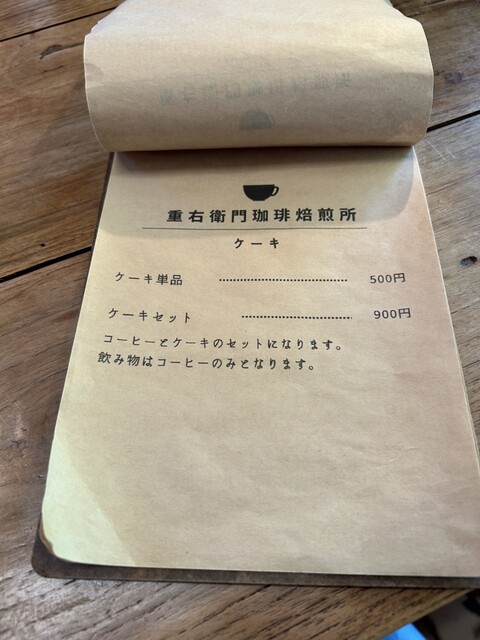 重右衛門珈琲焙煎所
ケーキ
ケーキ単品 500円
ケーキセット 900円
コーヒーとケーキのセットになります。
飲み物はコーヒーのみとなります。